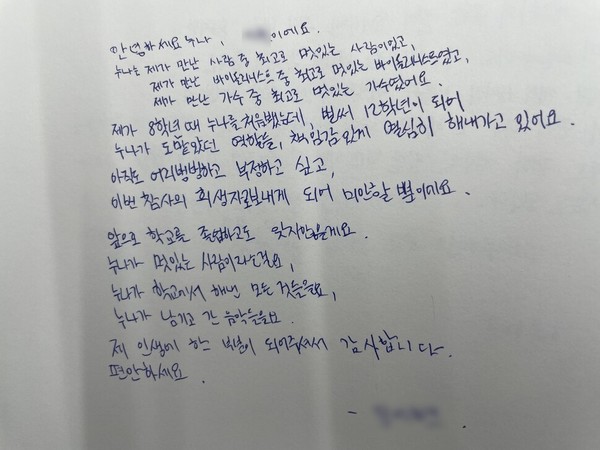 안녕하세요 누나, 이에요.
누나는 제가 만난 사람 중 최고로 멋있는 사람이었고,
제가 만난 바이올리니스트 중 최고로 멋있는 바이올리니스트였고,
제가 만난 가수 중 최고로 멋있는 가수였어요.
제가 8학년 때 누나를 처음봤는데, 벌써 12학년이 되어
누나가 도맡았던 역할들, 책임감있게 열심히 해내가고 있어요.
아직도 어리벙벙하고 부정하고 싶고,
이번 참사의 희생자로보내게 되어 미안할 뿐이에요.
앞으로 학교를 졸업하고도 잊지않을게요.
누나가 멋있는 사람이라는걸요,
누나가 학교에서 해낸 모든 것들을요,
누나가 남기고 간 음악들을요.
제 인생에 한 부분이 되어주셔서 감사합니다.
편안하세요.
-